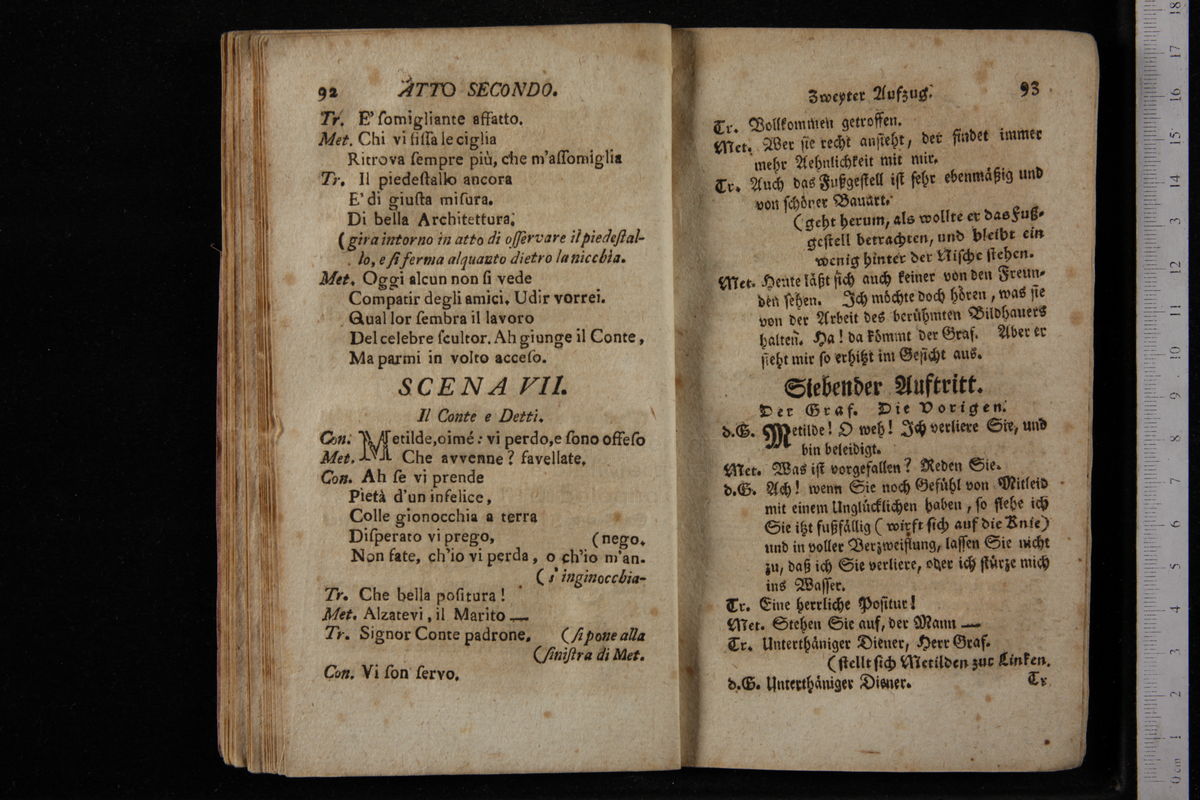 92 ATTO SECONDO.
Tr. E' ſomigliante affatto.
Met. Chi vi fiſſa le ciglia
Ritrova ſempre più, che m'aſſomiglia
Tr. Il piedeſtallo ancora
E' di giuſta miſura.
Di bella Architettura.
(gira intorno in atto di oſſervare il piedeſtal-
lo, e ſi ferma alquanto dietro la nicchia.
Met. Oggi alcun non ſi vede
Compatir degli amici. Udir vorrei.
Qual lor ſembra il lavoro
Del celebre ſcultor. Ah giunge il Conte,
Ma parmi in volto acceſo.
SCENA VII.
Il Conte e Detti.
Con. Metilde, oimé: vi perdo, e ſono offeſo
Met. Che avvenne? favellate.
Con. Ah ſe vi prende
Pietà d'un infelice,
Colle gionocchia a terra
Diſperato vi prego, (nego.
Non fate, ch'io vi perda, o ch'io m'an-
(s'inginocchia-
Tr. Che bella poſitura!
Met. Alzatevi, il Marito —
Tr. Signor Conte padrone. (ſi pone alla
(ſiniſtra di Met.
Con. Vi ſon ſervo.
Zweyter Aufzug. 93
Tr. Vollkommen getroffen.
Met. Wer ſie recht anſieht, der findet immer
mehr Aehnlichkeit mit mir.
Tr. Auch das Fußgeſtell iſt ſehr ebenmäßig und
von ſchöner Bauart.
(geht herum, als wollte er das Fuß-
geſtell betrachten, und bleibt ein
wenig hinter der Niſche ſtehen.
Met. Heute läßt ſich auch keiner von den Freun-
den ſehen. Ich möchte doch hören, was ſie
von der Arbeit des berühmten Bildhauers
halten. Ha! da kömmt der Graf. Aber er
ſieht mir ſo erhitzt im Geſicht aus.
Siebender Auftritt.
Der Graf. Die Vorigen.
d.G. Metilde! O weh! Ich verliere Sie, und
bin beleidigt.
Met. Was iſt vorgefallen? Reden Sie.
d.G. Ach! wenn Sie noch Gefühl von Mitleid
mit einem Unglücklichen haben, ſo flehe ich
Sie itzt fußfällig (wirft ſich auf die Knie)
und in voller Verzweiflung, laſſen Sie nicht
zu, daß ich Sie verliere, oder ich ſtürze mich
ins Waſſer.
Tr. Eine herrliche Poſitur!
Met. Stehen Sie auf, der Mann —
Tr. Unterthäniger Diener, Herr Graf.
(ſtellt ſich Metilden zur Linken.
d.G. Unterthäniger Diener.
Tr.